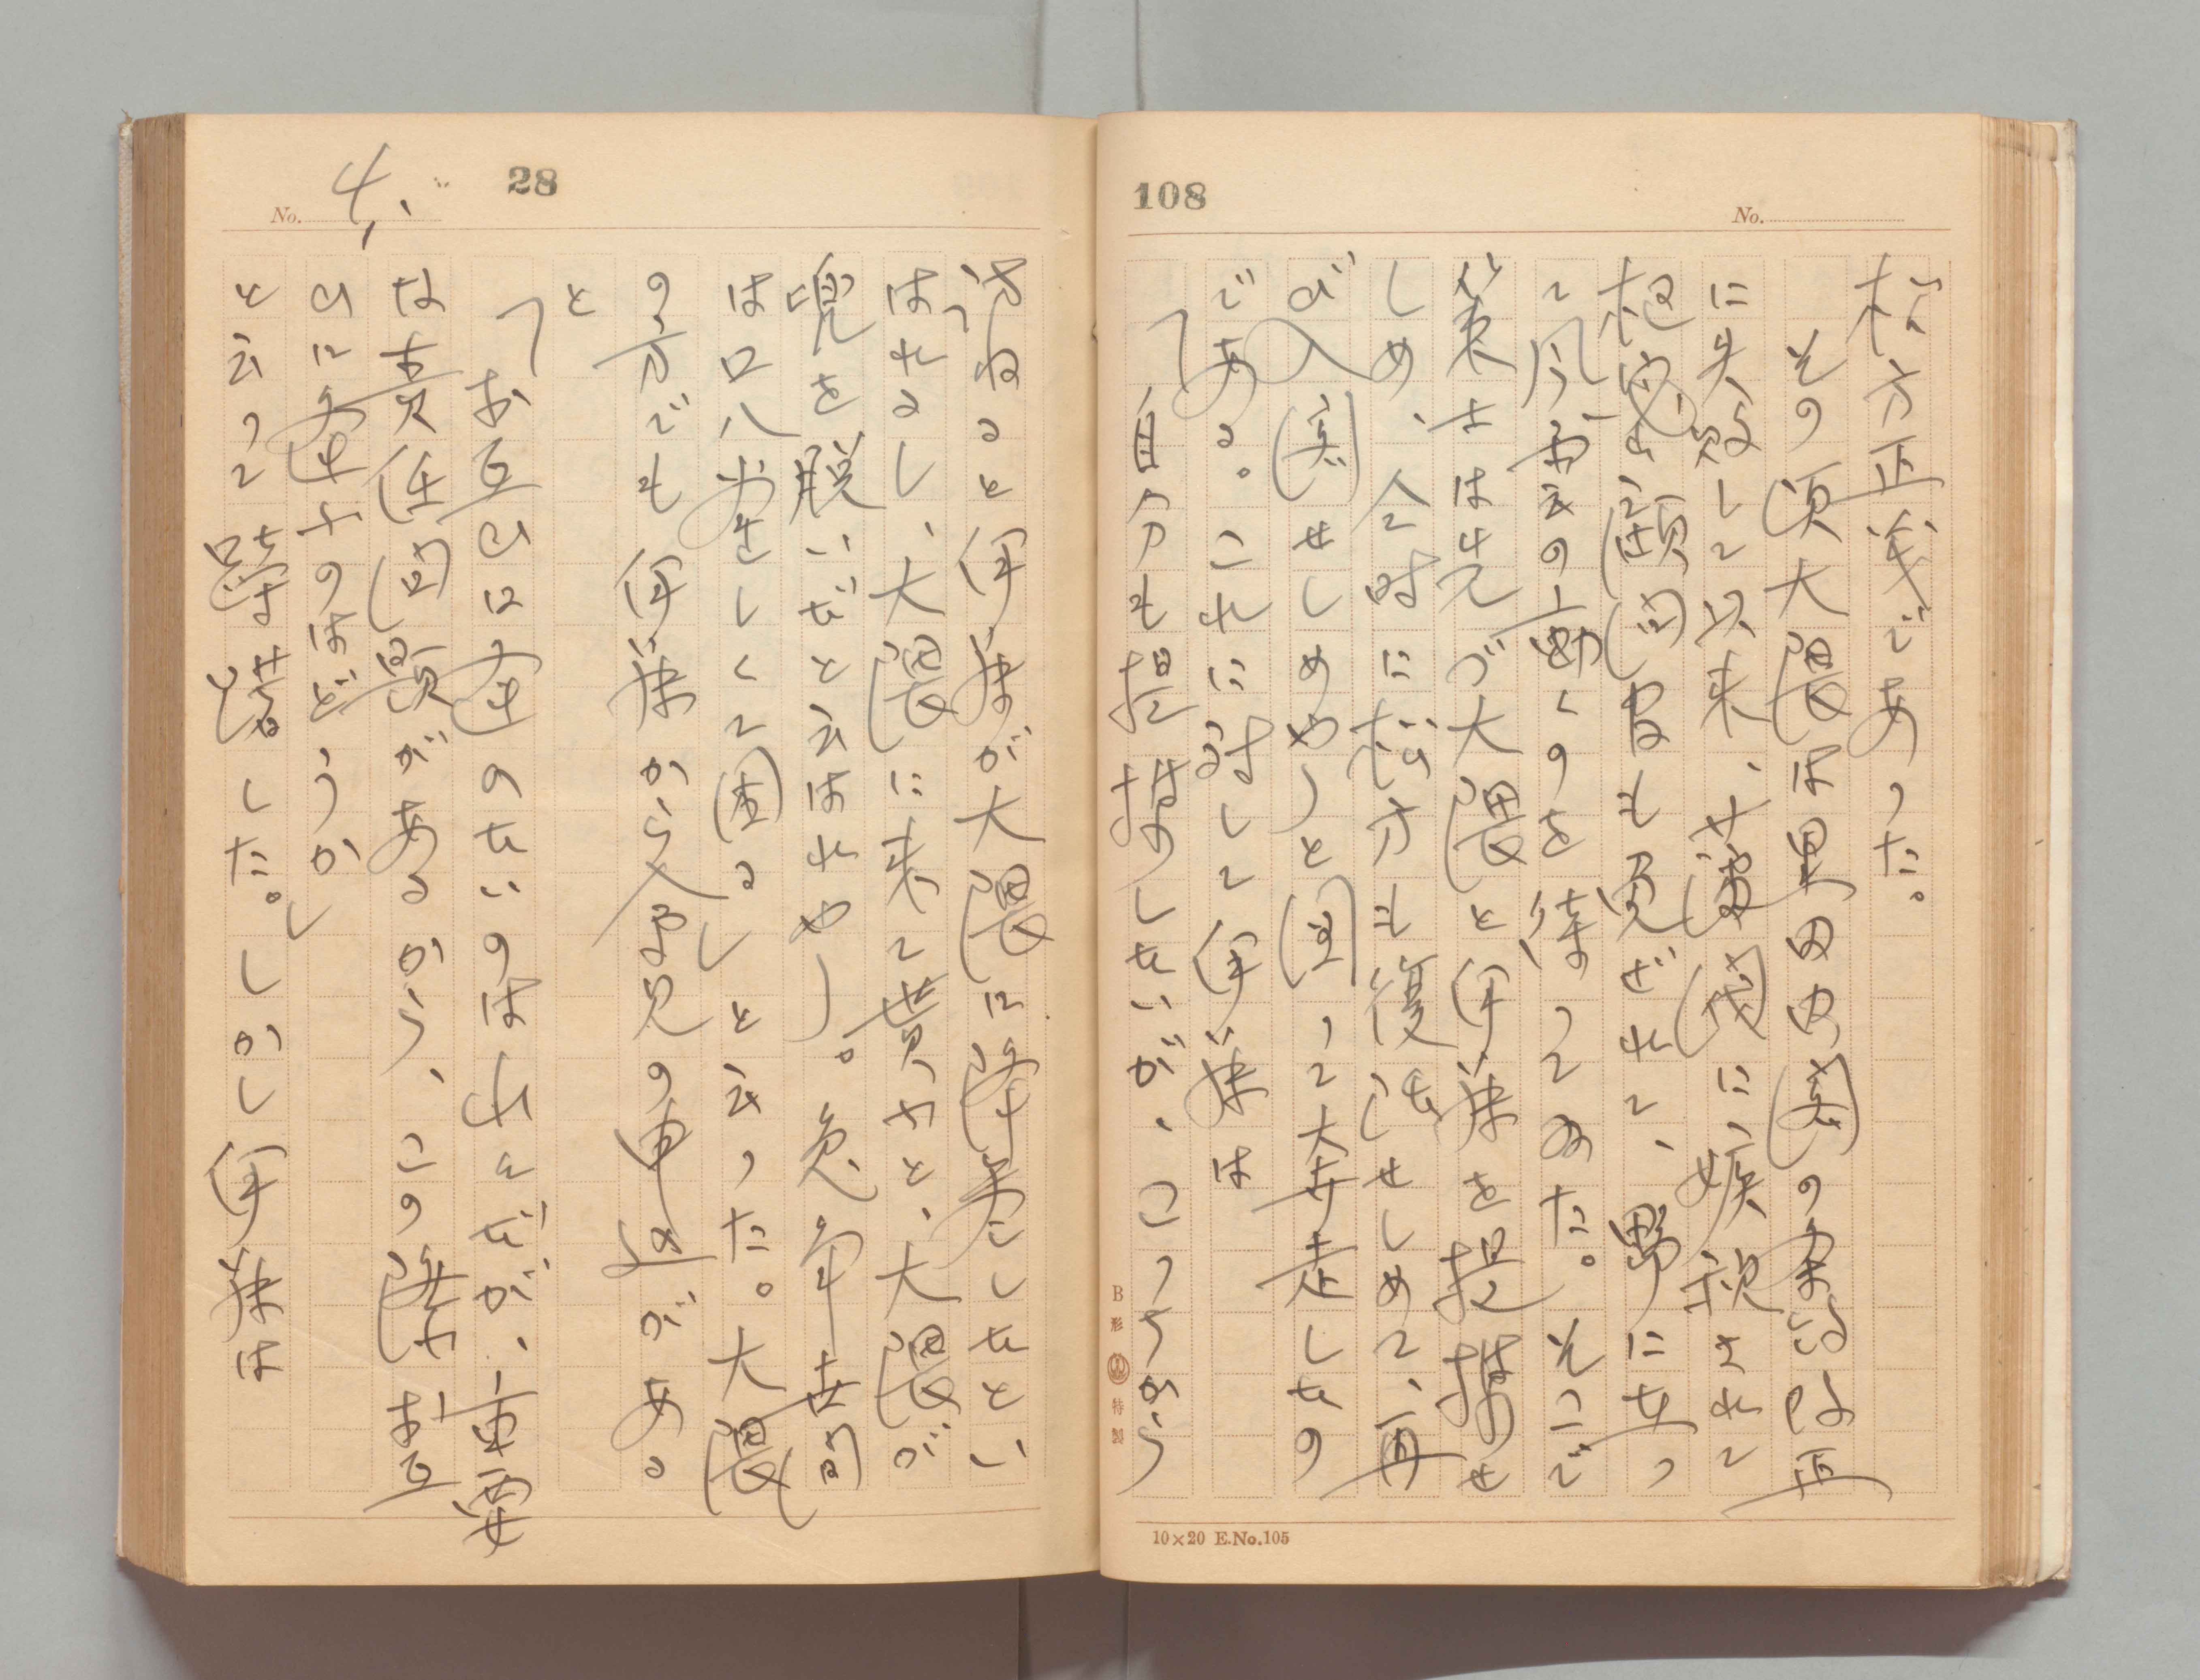 108
No.
松方正義であった。
その頃大隈は黒田内閣の条約改正
に失敗して以来、薩閥に嫉視されて
枢密顧問官も免ぜれて、野に在っ
て風雲の動くのを待つてゐた。そこで
策士は先づ大隈と伊藤を提携せ
しめ、仝時に松方も復活せしめて、再
び入閣せしめやうと図って大奔走したの
である。これに対して伊藤は
「自分も提携したいが、こつちから
B形 特製
10×20 E.No.105
28
No. 4.
訪ねると伊藤が大隈に降参したとい
はれるし、大隈に来て貰ふと、大隈が
兜を脱いだと云はれやう。兔角世間
は口八釜しくて困る」と云った。大隈
の方でも伊藤から会見の申込がある
と
「お互ひに運のないのは止むだが、重要
な責任問題があるから、この際お互
ひに運ふのはどうか」
と云って躊躇した。しかし伊藤は